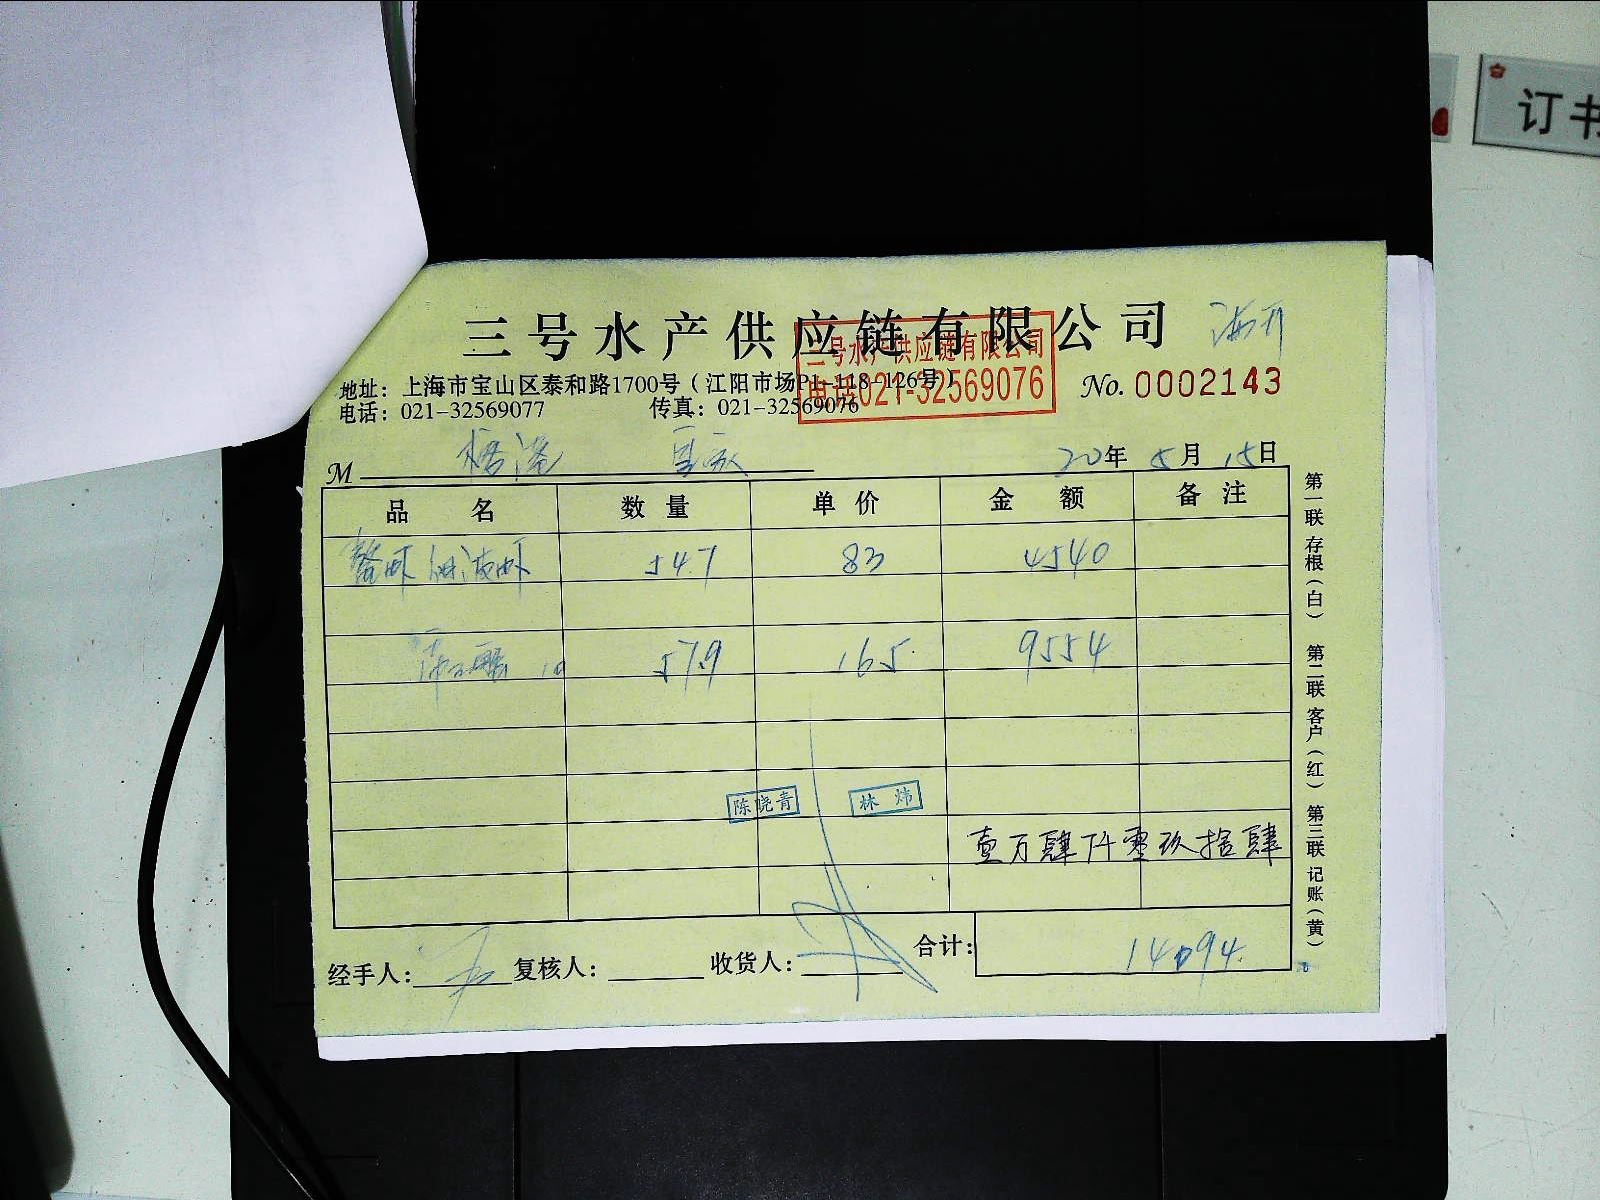 订书
三号水产供应链有限公司
三号水产供应链有限公司
电话021-32569076
地址：上海市宝山区泰和路1700号（江阳市场P1-118-126号）
电话：021-32569077 传真：021-32569076
No. 0002143
M
20年 5月 15日
品名 数量 单价 金额 备注
54.7 83 4540
57.9 165 9554
陈晓青 林炜
壹万肆仟零玖拾肆
合计： 14094.
经手人： 复核人： 收货人：
第一联 存根（白） 第二联 客户（红） 第三联 记账（黄）